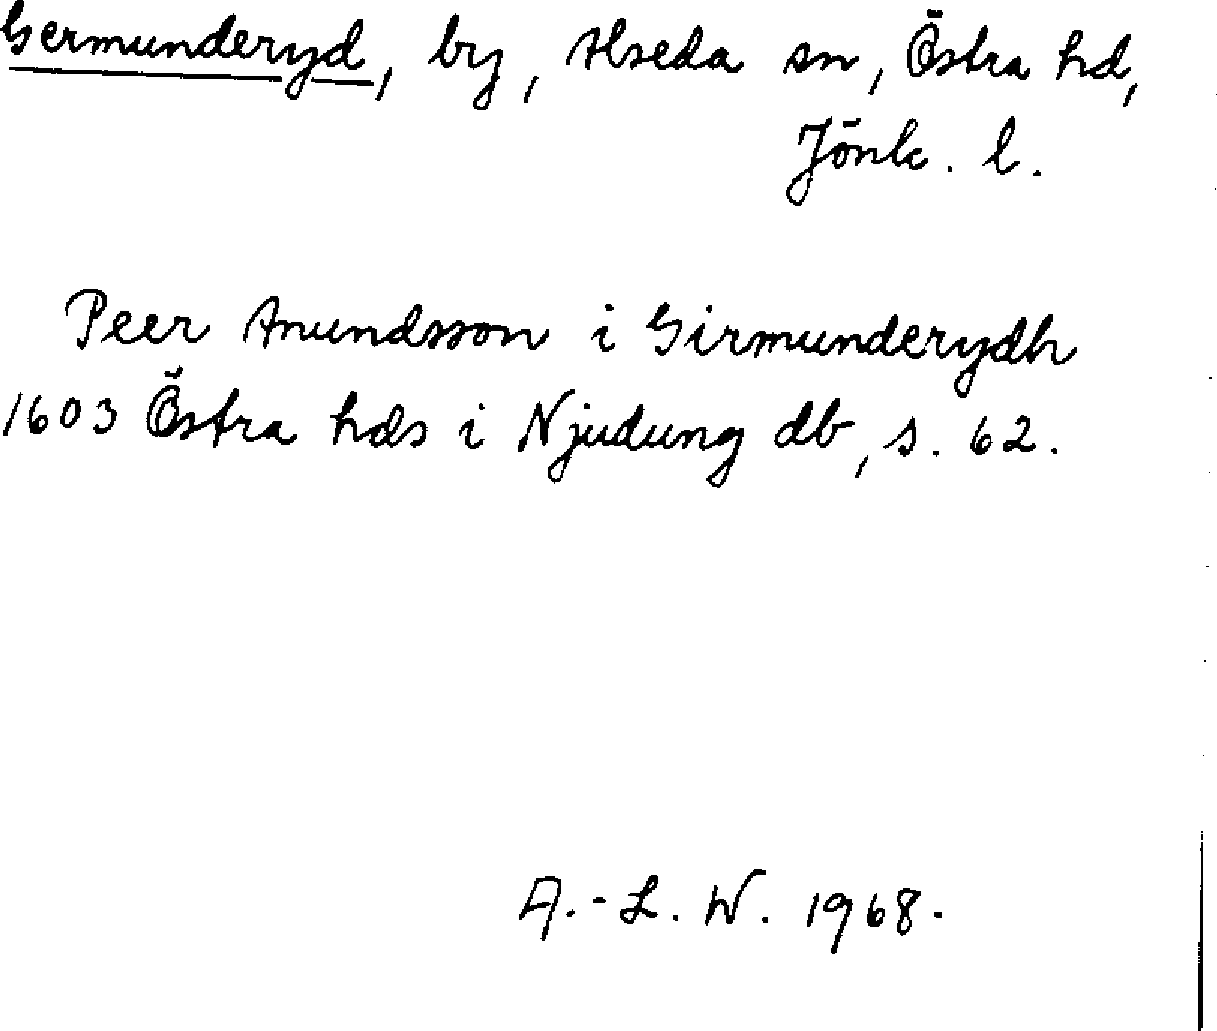 Germunderyd, by, Alseda sn, Östra hd,
Jönk. l.
Peer Anundsson i Girmunderydh
1603 Östra hds i Njudung db, s. 62.
A.-L. W. 1968.